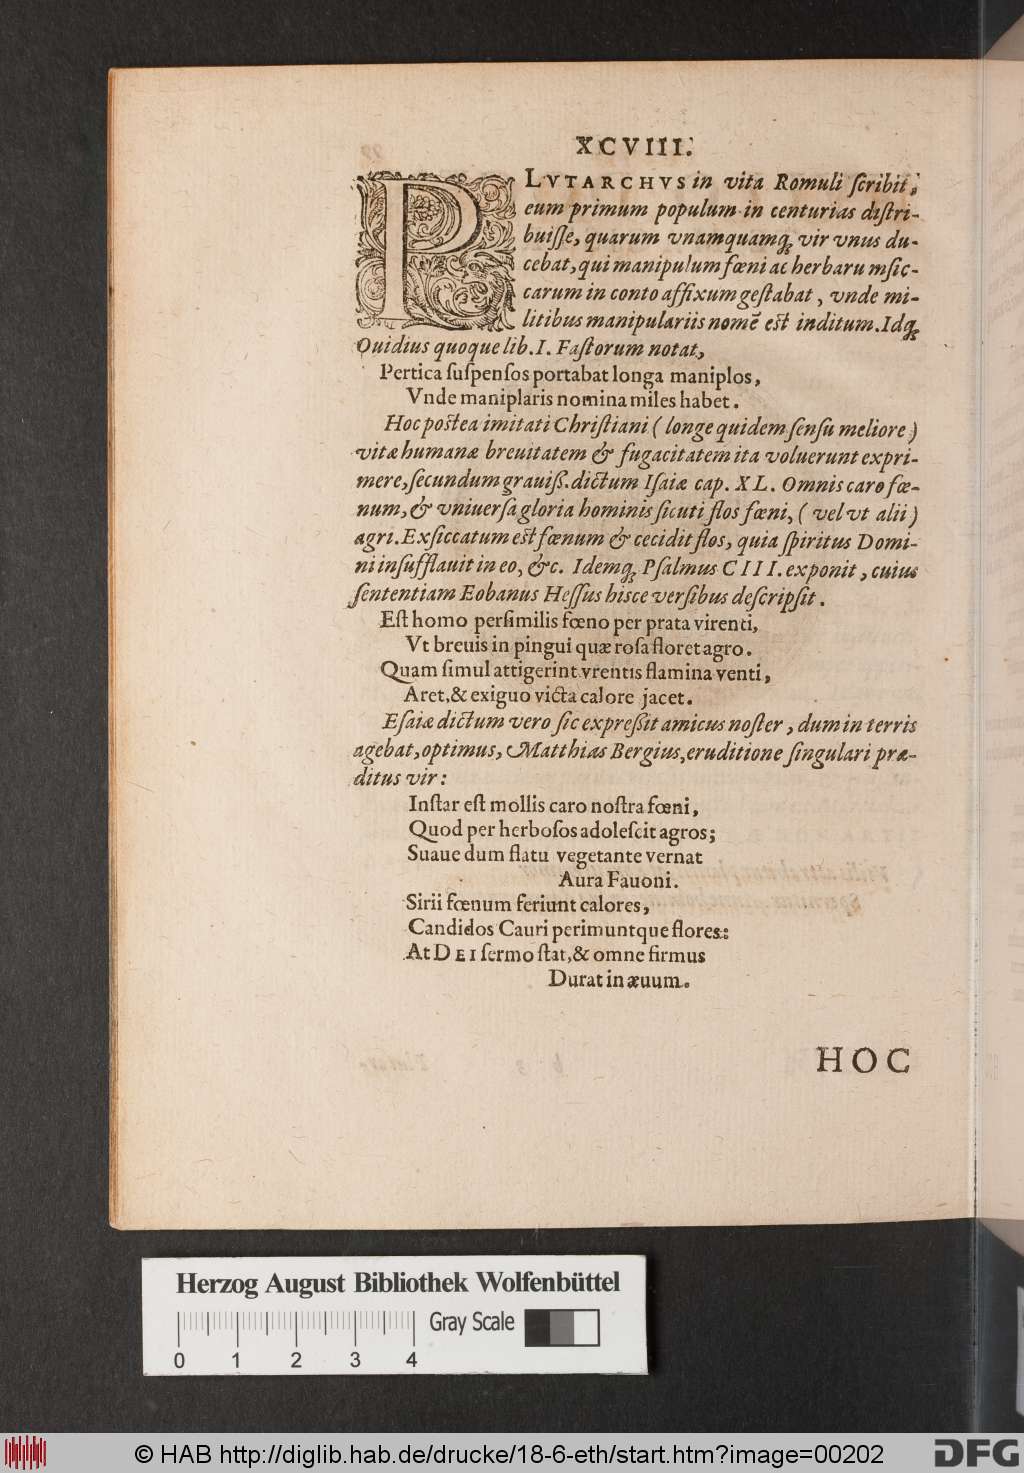 XCVIII.
PLVTARCHVS in vita Romuli ſcribit,
eum primum populum in centurias diſtri-
buiſſe, quarum vnamquamq; vir vnus du-
cebat, qui manipulum fœni ac herbaru mſic-
carum in conto affixum geſtabat, vnde mi-
litibus manipulariis nomē eſt inditum. Idq;
Ouidius quoque lib. I. Faſtorum notat,
Pertica ſuſpenſos portabat longa maniplos,
Vnde maniplaris nomina miles habet.
Hoc poſtea imitati Chriſtiani (longe quidem ſenſu meliore)
vitæ humanæ breuitatem & fugacitatem ita voluerunt expri-
mere, ſecundum grauiß. dictum Iſaiæ cap. XL. Omnis caro fœ-
num, & vniuerſa gloria hominis ſicuti flos fœni, (vel vt alii)
agri. Exſiccatum eſt fœnum & cecidit flos, quia ſpiritus Domi-
ni inſufflauit in eo, &c. Idemq; Pſalmus CIII. exponit, cuius
ſententiam Eobanus Heſſus hisce verſibus deſcripſit.
Eſt homo perſimilis fœno per prata virenti,
Vt breuis in pingui quæ roſa floret agro.
Quam ſimul attigerint vrentis flamina venti,
Aret, & exiguo victa calore jacet.
Eſaiæ dictum vero ſic expreßit amicus noſter, dum in terris
agebat, optimus, Matthias Bergius, eruditione ſingulari præ-
ditus vir:
Inſtar eſt mollis caro noſtra fœni,
Quod per herboſos adoleſcit agros;
Suaue dum flatu vegetante vernat
Aura Fauoni.
Sirii fœnum feriunt calores,
Candidos Cauri perimuntque flores:
At DEI ſermo ſtat, & omne firmus
Durat in æuum.
HOC
Herzog August Bibliothek Wolfenbüttel
Gray Scale
0 1 2 3 4
© HAB http://diglib.hab.de/drucke/18-6-eth/start.htm?image=00202
DFG